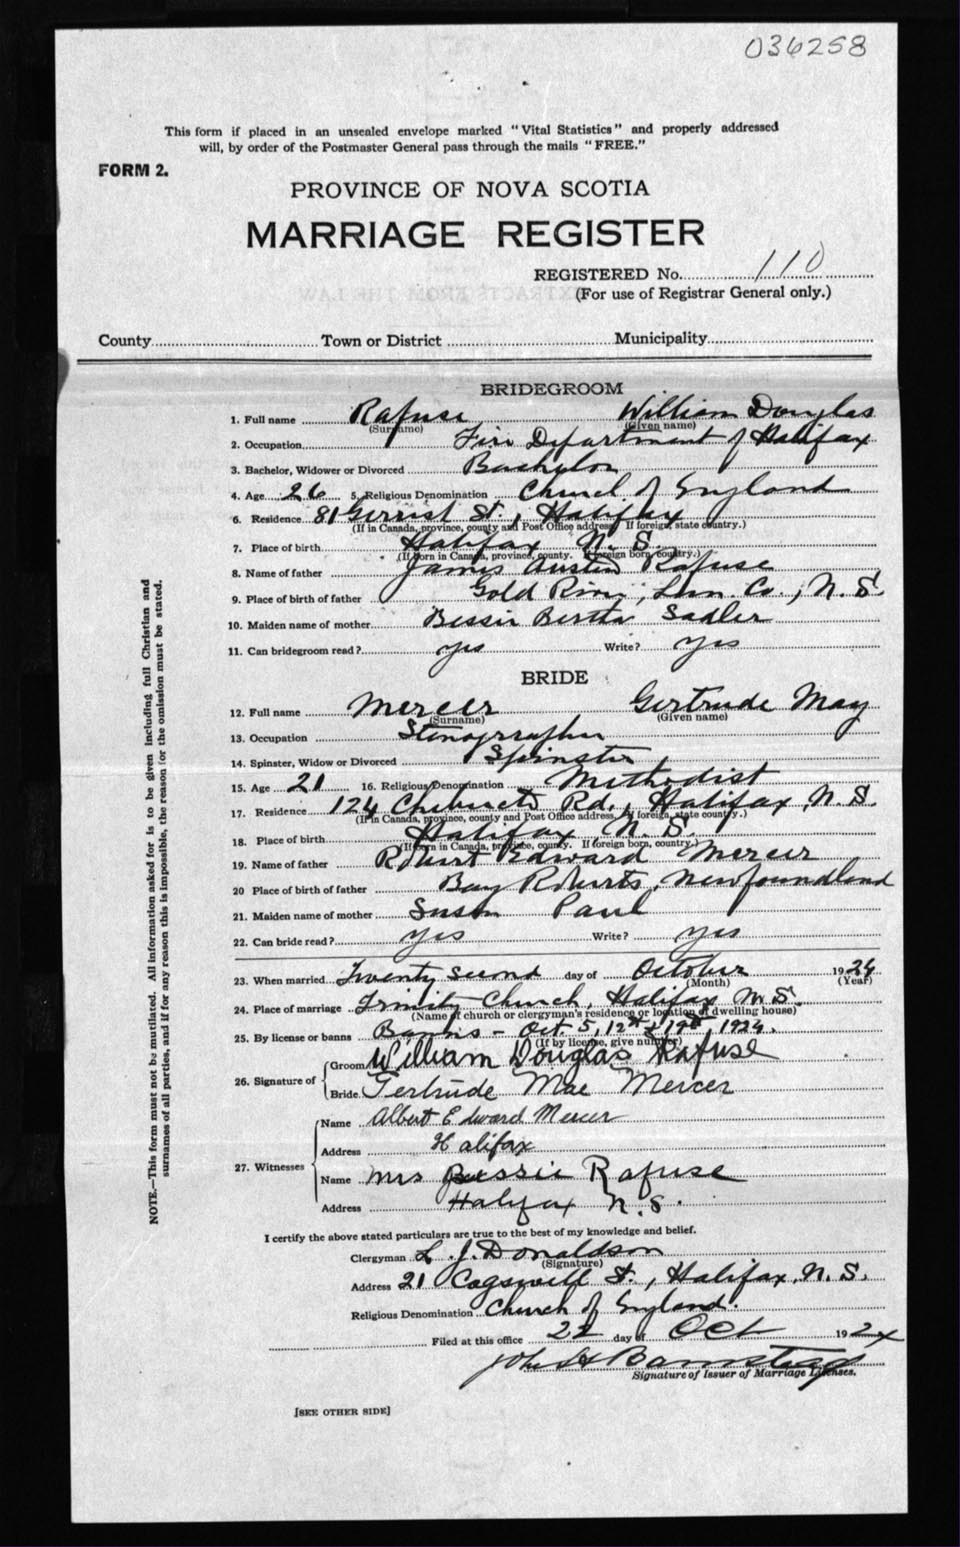 036258
This form if placed in an unsealed envelope marked "Vital Statistics" and properly addressed
will, by order of the Postmaster General pass through the mails "FREE."
FORM 2.
PROVINCE OF NOVA SCOTIA
MARRIAGE REGISTER
REGISTERED No. 110
(For use of Registrar General only.)
County Town or District Municipality
BRIDEGROOM
1. Full name Rafuse William Douglas
(Surname) (Given name)
2. Occupation Fire Department of Halifax
3. Bachelor, Widower or Divorced Bachelor
4. Age 26 5. Religious Denomination Church of England
6. Residence 81 Gerrish St., Halifax
(If in Canada, province, county and Post Office address. If foreign, state country.)
7. Place of birth Halifax N. S.
(If born in Canada, province, county. If foreign born, country.)
8. Name of father James Austen Rafuse
9. Place of birth of father Gold River, Lun. Co., N. S.
10. Maiden name of mother Bessie Bertha Sadler
11. Can bridegroom read? yes Write? yes
BRIDE
12. Full name Mercer Gertrude May
(Surname) (Given name)
13. Occupation Stenographer
14. Spinster, Widow or Divorced Spinster
15. Age 21 16. Religious Denomination Methodist
17. Residence 124 Chebucto Rd., Halifax, N. S.
(If in Canada, province, county and Post Office address, if foreign, state country.)
18. Place of birth Halifax N. S.
(If born in Canada, province, county. If foreign born, country.)
19. Name of father Robert Edward Mercer
20 Place of birth of father Bay Roberts, Newfoundland
21. Maiden name of mother Susan Paul
22. Can bride read? yes Write? yes
23. When married Twenty second day of October 1924
(Month) (Year)
24. Place of marriage Trinity Church, Halifax N. S.
(Name of church or clergyman's residence or location of dwelling house)
25. By license or banns Banns - Oct. 5, 12th & 19th, 1924.
(If by license, give number)
26. Signature of Groom William Douglas Rafuse
Bride Gertrude Mae Mercer
27. Witnesses Name Albert Edward Mercer
Address Halifax
Name Mrs Bessie Rafuse
Address Halifax N. S.
I certify the above stated particulars are true to the best of my knowledge and belief.
Clergyman L. J. Donaldson
(Signature)
Address 21 Cogswell St., Halifax, N. S.
Religious Denomination Church of England.
Filed at this office 22 day of Oct 1924
Signature of Issuer of Marriage Licenses.
[SEE OTHER SIDE]
NOTE.—This form must not be mutilated. All information asked for is to be given including full Christian and
surnames of all parties, and if for any reason this is impossible, the reason for the omission must be stated.